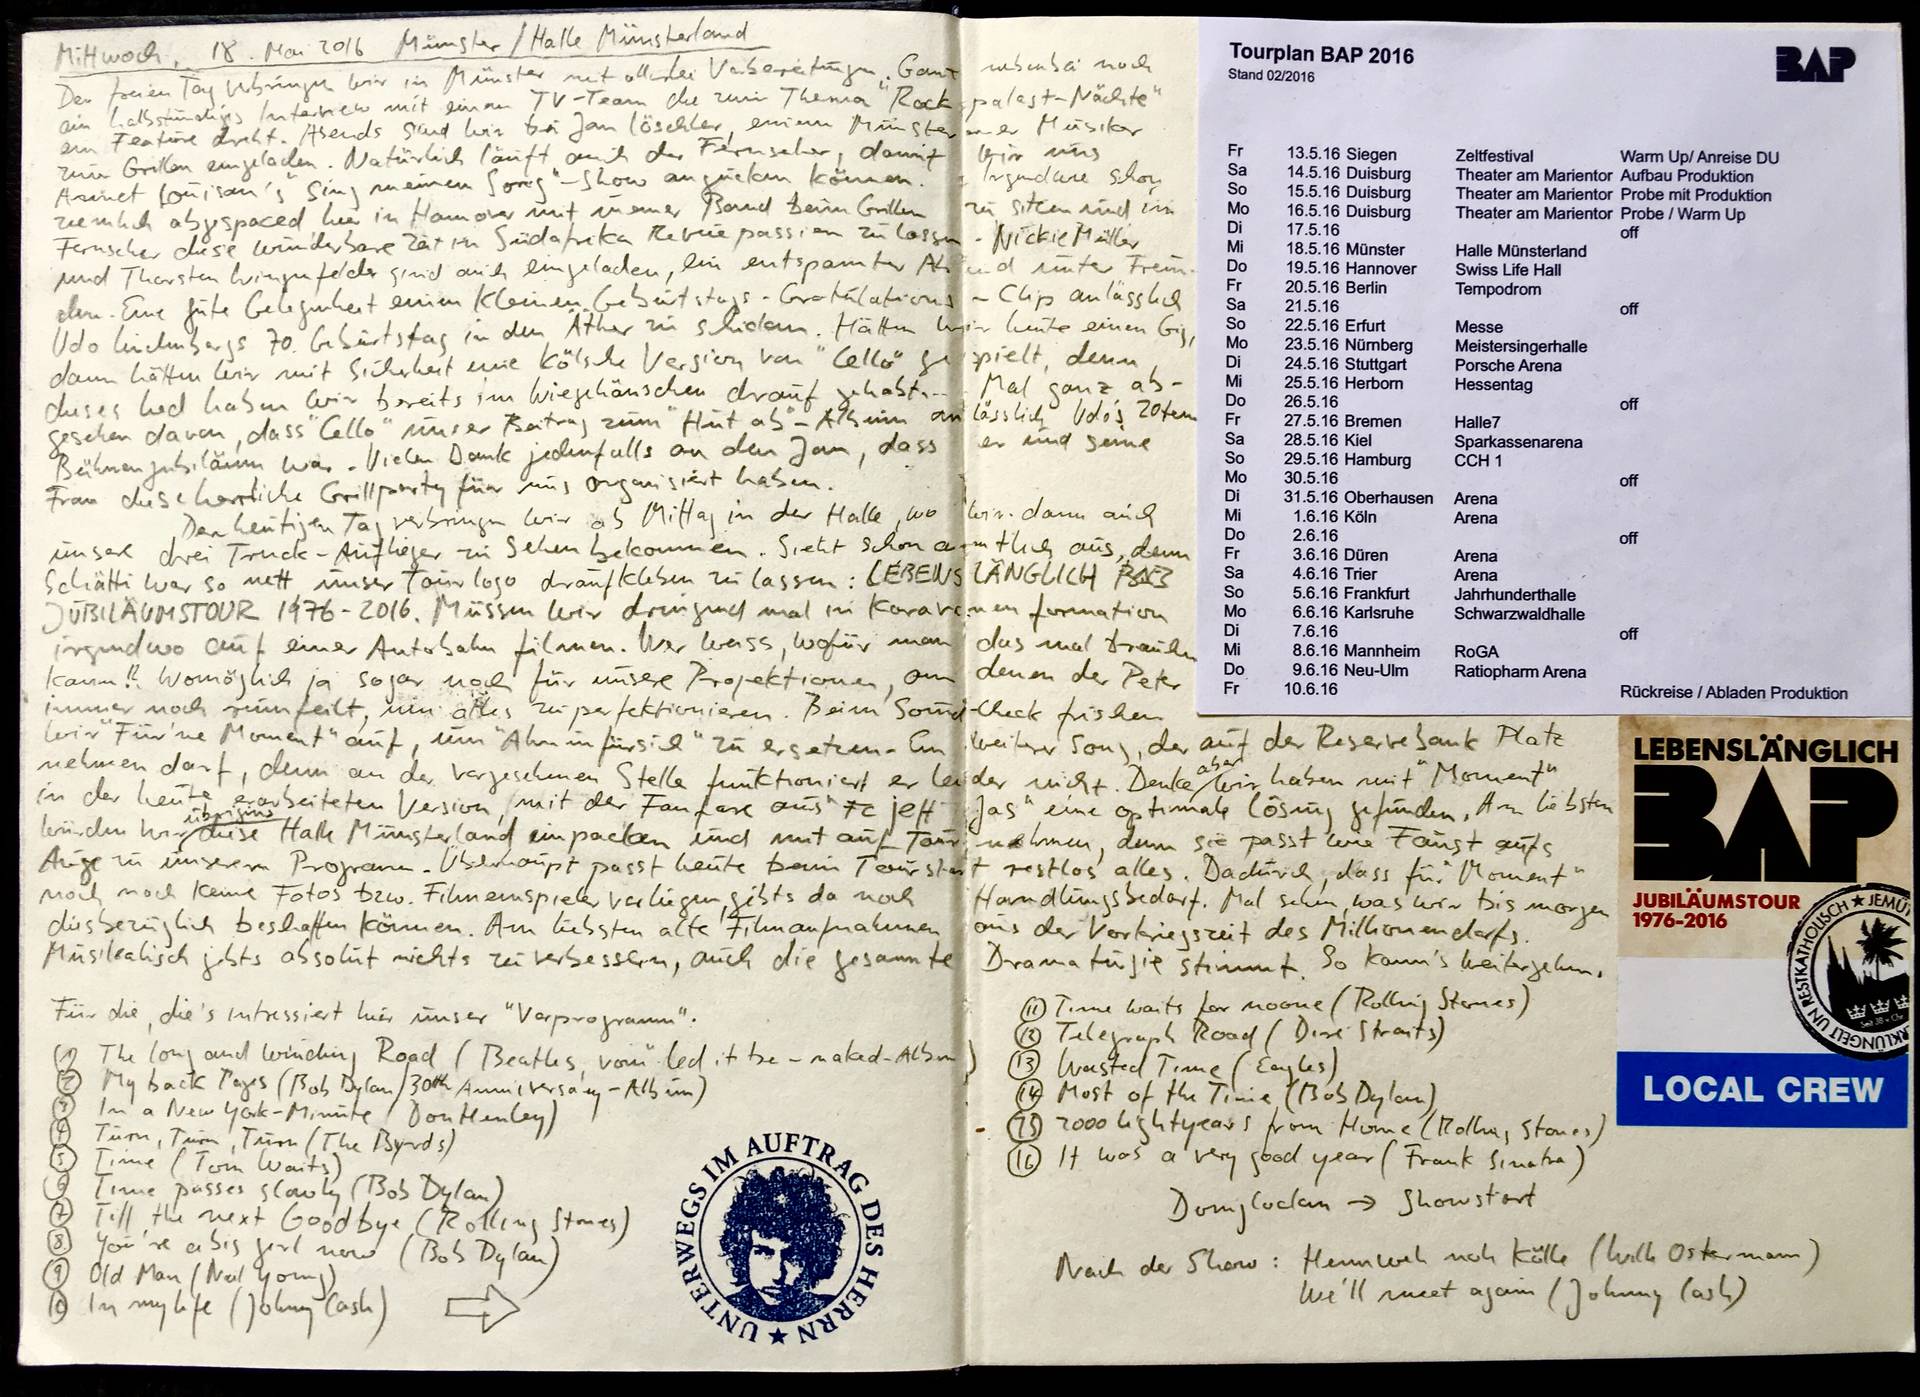 Mittwoch, 18. Mai 2016 Münster/Halle Münsterland
Den freien Tag verbringen wir in Münster mit allerlei Vorbereitungen. Ganz nebenbei noch
ein halbstündiges Interview mit einem TV-Team die zum Thema "Rockpalast-Nächte"
ein Feature dreht. Abends sind wir bei Jan Löschler, einem Münsteraner Musiker
zum Grillen eingeladen. Natürlich läuft auch der Fernseher, damit wir uns
Annet Louisan's "Sing meinen Song"-Show angucken können. Irgendwie schon
ziemlich abgespaced hier in Hannover mit meiner Band beim Grillen zu sitzen und im
Fernseher diese wunderbare Zeit in Südafrika Revue passieren zu lassen. Nickie Müller
und Thorsten Wingenfelder sind auch eingeladen, ein entspannter Abend unter Freun-
den. Eine gute Gelegenheit einen kleinen Geburtstags-Gratulations-Clip anlässlich
Udo Lindenbergs 70. Geburtstag in den Äther zu schicken. Hätten wir heute einen Gig,
dann hätten wir mit Sicherheit eine kölsche Version von "Cello" gespielt, denn
dieses Lied haben wir bereits im Wiegehänschen drauf gehabt... Mal ganz ab-
gesehen davon, dass "Cello" unser Beitrag zum "Hut ab"-Album anlässlich Udo's 20tem
Bühnenjubiläum war. Vielen Dank jedenfalls an den Jan, dass er und seine
Frau diese herrliche Grillparty für uns organisiert haben.
Den heutigen Tag verbringen wir ab Mittag in der Halle, wo wir dann auch
unsere drei Truck-Auflieger zu sehen bekommen. Sieht schon amtlich aus, denn
Schätti war so nett unser Tourlogo draufkleben zu lassen: LEBENSLÄNGLICH BAP
JUBILÄUMSTOUR 1976-2016. Müssen wir dringend mal in Karavanenformation
irgendwo auf einer Autobahn filmen. Wer weiss, wofür man das mal brauchen
kann!! Womöglich ja sogar noch für unsere Projektionen, an denen der Peter
immer noch rumfeilt, um alles zu perfektionieren. Beim Soundcheck frischen
wir "Für'ne Moment" auf, um "Ahn un fürsich" zu ersetzen. Ein weiterer Song, der auf der Reservebank Platz
nehmen darf, denn an der vorgesehenen Stelle funktioniert er leider nicht. Denke aber wir haben mit "Moment"
in der heute erarbeiteten Version, mit der Fanfare aus "Et jeff Jas" eine optimale Lösung gefunden. Am liebsten
würden wir übrigens diese Halle Münsterland einpacken und mit auf Tour nehmen, denn sie passt wie Faust aufs
Auge zu unserem Programm. Überhaupt passt heute beim Tourstart restlos alles. Dadurch, dass für "Moment"
noch noch keine Fotos bzw. Filmeinspieler vorliegen, gibts da noch Handlungsbedarf. Mal sehen, was wir bis morgen
diesbezüglich beschaffen können. Am liebsten alte Filmaufnahmen aus der Vorkriegszeit des Millionendorfs.
Musikalisch gibts absolut nichts zu verbessern, auch die gesamte Dramaturgie stimmt. So kann's weitergehen.
Für die, die's intressiert hier unser "Vorprogramm".
① The long and winding Road (Beatles, vom "Let it be - naked-Album)
② My back Pages (Bob Dylan/30th Anniversary-Album)
③ In a New York-Minute (Don Henley)
④ Turn, Turn, Turn (The Byrds)
⑤ Time (Tom Waits)
⑥ Time passes slowly (Bob Dylan)
⑦ Till the next Goodbye (Rolling Stones)
⑧ You're a big girl now (Bob Dylan)
⑨ Old Man (Neil Young)
⑩ In my life (Johnny Cash)
UNTERWEGS IM AUFTRAG DES HERRN ★
⑪ Time waits for noone (Rolling Stones)
⑫ Telegraph Road (Dire Straits)
⑬ Wasted Time (Eagles)
⑭ Most of the Time (Bob Dylan)
⑮ 2000 Lightyears from Home (Rolling Stones)
⑯ It was a very good year (Frank Sinatra)
Domglocken → Showstart
Nach der Show: Heimweh noh Kölle (Willi Ostermann)
We'll meet again (Johnny Cash)
Tourplan BAP 2016
Stand 02/2016
BAP
Fr 13.5.16 Siegen Zeltfestival Warm Up/ Anreise DU
Sa 14.5.16 Duisburg Theater am Marientor Aufbau Produktion
So 15.5.16 Duisburg Theater am Marientor Probe mit Produktion
Mo 16.5.16 Duisburg Theater am Marientor Probe / Warm Up
Di 17.5.16 off
Mi 18.5.16 Münster Halle Münsterland
Do 19.5.16 Hannover Swiss Life Hall
Fr 20.5.16 Berlin Tempodrom
Sa 21.5.16 off
So 22.5.16 Erfurt Messe
Mo 23.5.16 Nürnberg Meistersingerhalle
Di 24.5.16 Stuttgart Porsche Arena
Mi 25.5.16 Herborn Hessentag
Do 26.5.16 off
Fr 27.5.16 Bremen Halle7
Sa 28.5.16 Kiel Sparkassenarena
So 29.5.16 Hamburg CCH 1
Mo 30.5.16 off
Di 31.5.16 Oberhausen Arena
Mi 1.6.16 Köln Arena
Do 2.6.16 off
Fr 3.6.16 Düren Arena
Sa 4.6.16 Trier Arena
So 5.6.16 Frankfurt Jahrhunderthalle
Mo 6.6.16 Karlsruhe Schwarzwaldhalle
Di 7.6.16 off
Mi 8.6.16 Mannheim RoGA
Do 9.6.16 Neu-Ulm Ratiopharm Arena
Fr 10.6.16 Rückreise / Abladen Produktion
LEBENSLÄNGLICH
BAP
JUBILÄUMSTOUR
1976-2016
RESTKATHOLISCH ★ JEMÜ
RKLÜNGELT UN
LOCAL CREW